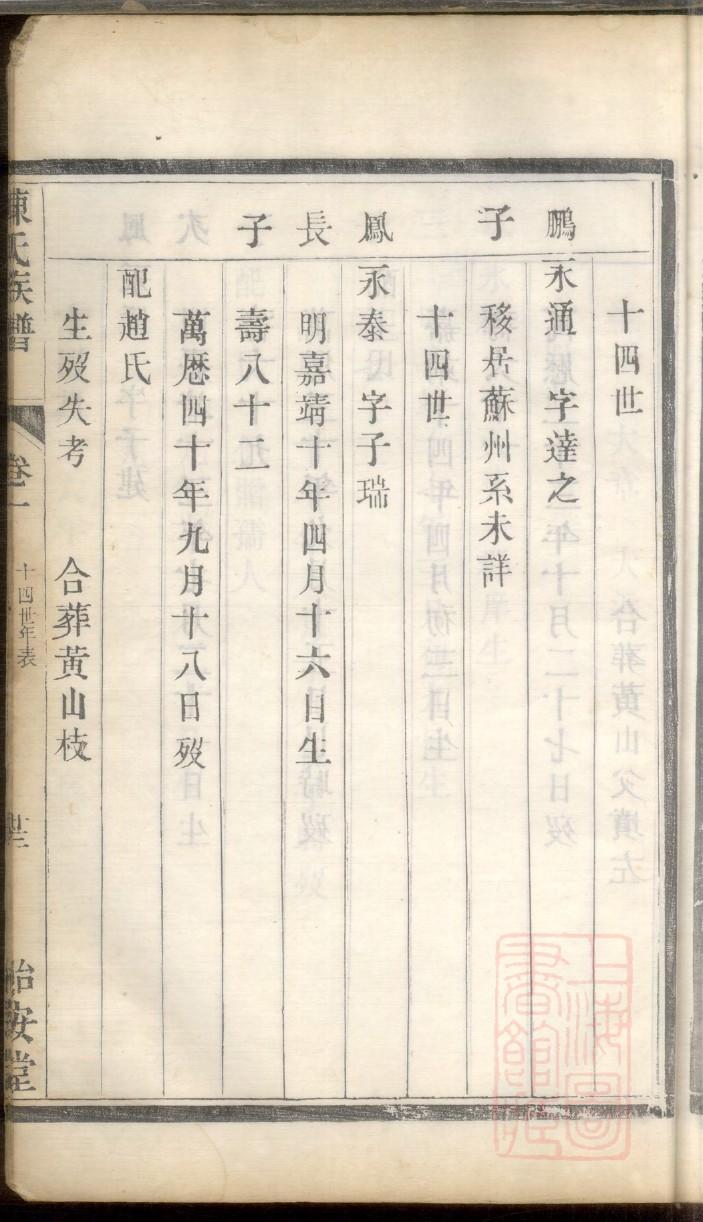 十四世
鵬 永通 字達之
子 移居蘇州系未詳
十四世
鳳 永泰 字子瑞
長 明嘉靖十年四月十六日生
子 壽八十二
萬厯四十年九月十八日歿
配趙氏
生歿失考 合葬黄山枝
陳氏族譜 卷一 十四世年表 怡安堂
上海圖書館藏